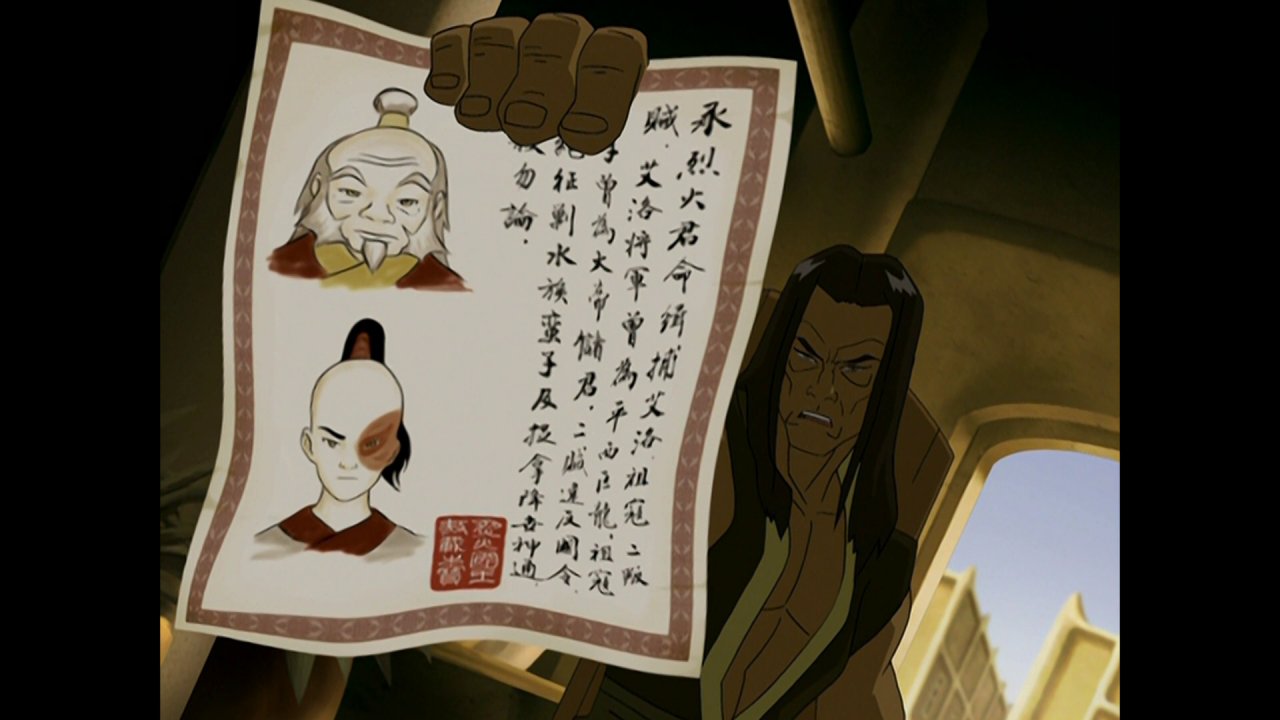 承烈火君命緝捕艾洛.祖寇二叛
賊.艾洛將軍曾為平西巨龍.祖寇
子曾為大帝儲君.二賊違反國令.
絕征剿水族蠻子及捉拿降世神通.
勿論.